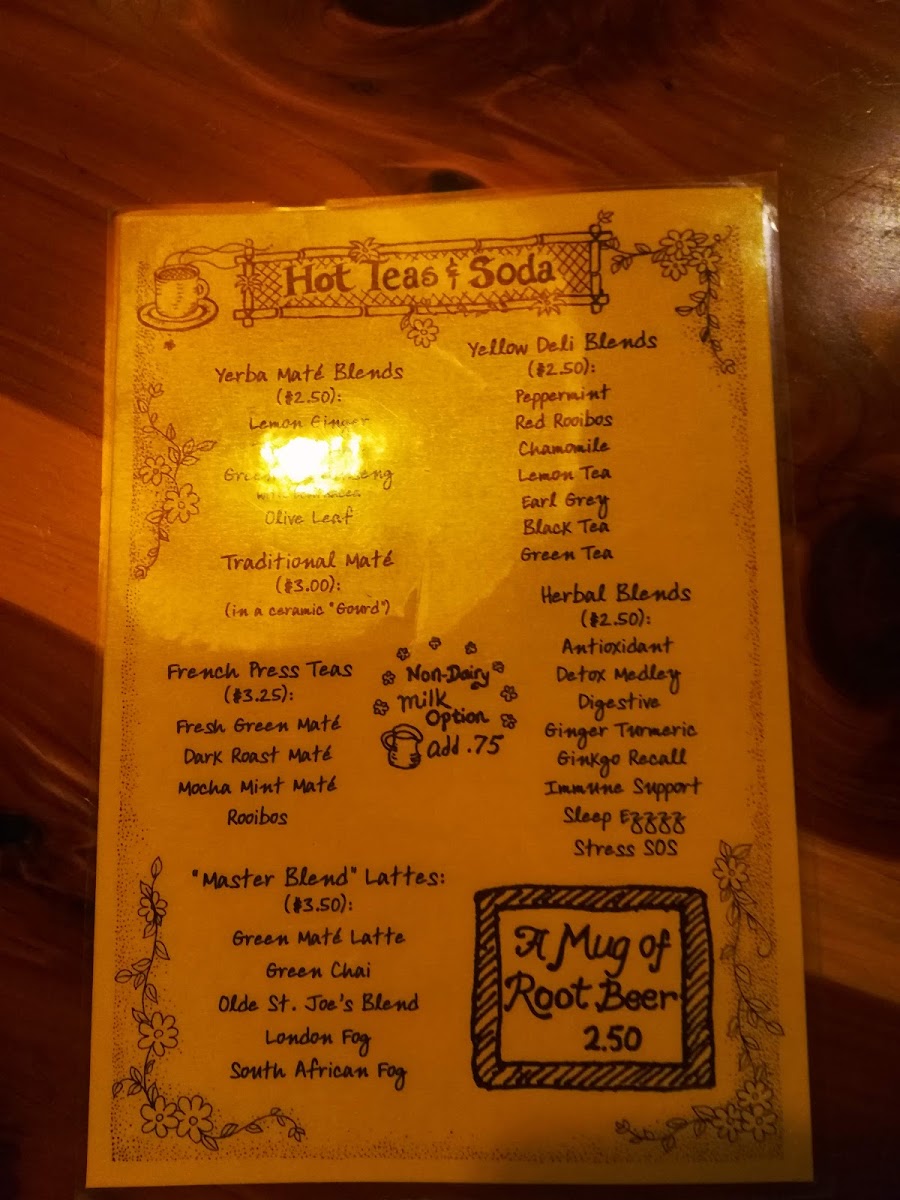 Hot Teas & Soda
Yerba Maté Blends
($2.50):
Lemon Ginger
Olive Leaf
Traditional Maté
($3.00):
(in a ceramic "Gourd")
French Press Teas
($3.25):
Fresh Green Maté
Dark Roast Maté
Mocha Mint Maté
Rooibos
"Master Blend" Lattes:
($3.50):
Green Maté Latte
Green Chai
Olde St. Joe's Blend
London Fog
South African Fog
Non-Dairy
Milk
Option
add .75
Yellow Deli Blends
($2.50):
Peppermint
Red Rooibos
Chamomile
Lemon Tea
Earl Grey
Black Tea
Green Tea
Herbal Blends
($2.50):
Antioxidant
Detox Medley
Digestive
Ginger Turmeric
Ginkgo Recall
Immune Support
Sleep Ezzzz
Stress SOS
A Mug of
Root Beer
2.50